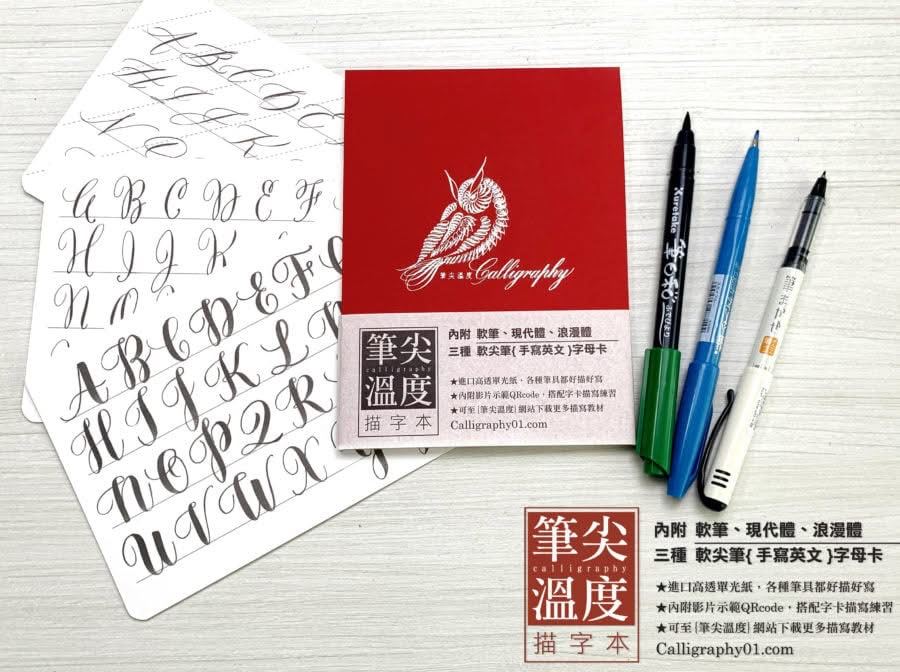 A B C D
H I J K
N O
A B C D E F
H I J K
N
A B C D E F G
H I J K L
N O P Q R
U V W X Y
筆尖溫度 Calligraphy
筆尖
calligraphy
溫度
描字本
內附 軟筆、現代體、浪漫體
三種 軟尖筆{手寫英文}字母卡
★進口高透單光紙，各種筆具都好描好寫
★內附影片示範QRcode，搭配字卡描寫練習
★可至{筆尖溫度}網站下載更多描寫教材
Calligraphy01.com
Kuretake
筆まかせ
筆尖
calligraphy
溫度
描字本
內附 軟筆、現代體、浪漫體
三種 軟尖筆{手寫英文}字母卡
★進口高透單光紙，各種筆具都好描好寫
★內附影片示範QRcode，搭配字卡描寫練習
★可至{筆尖溫度}網站下載更多描寫教材
Calligraphy01.com